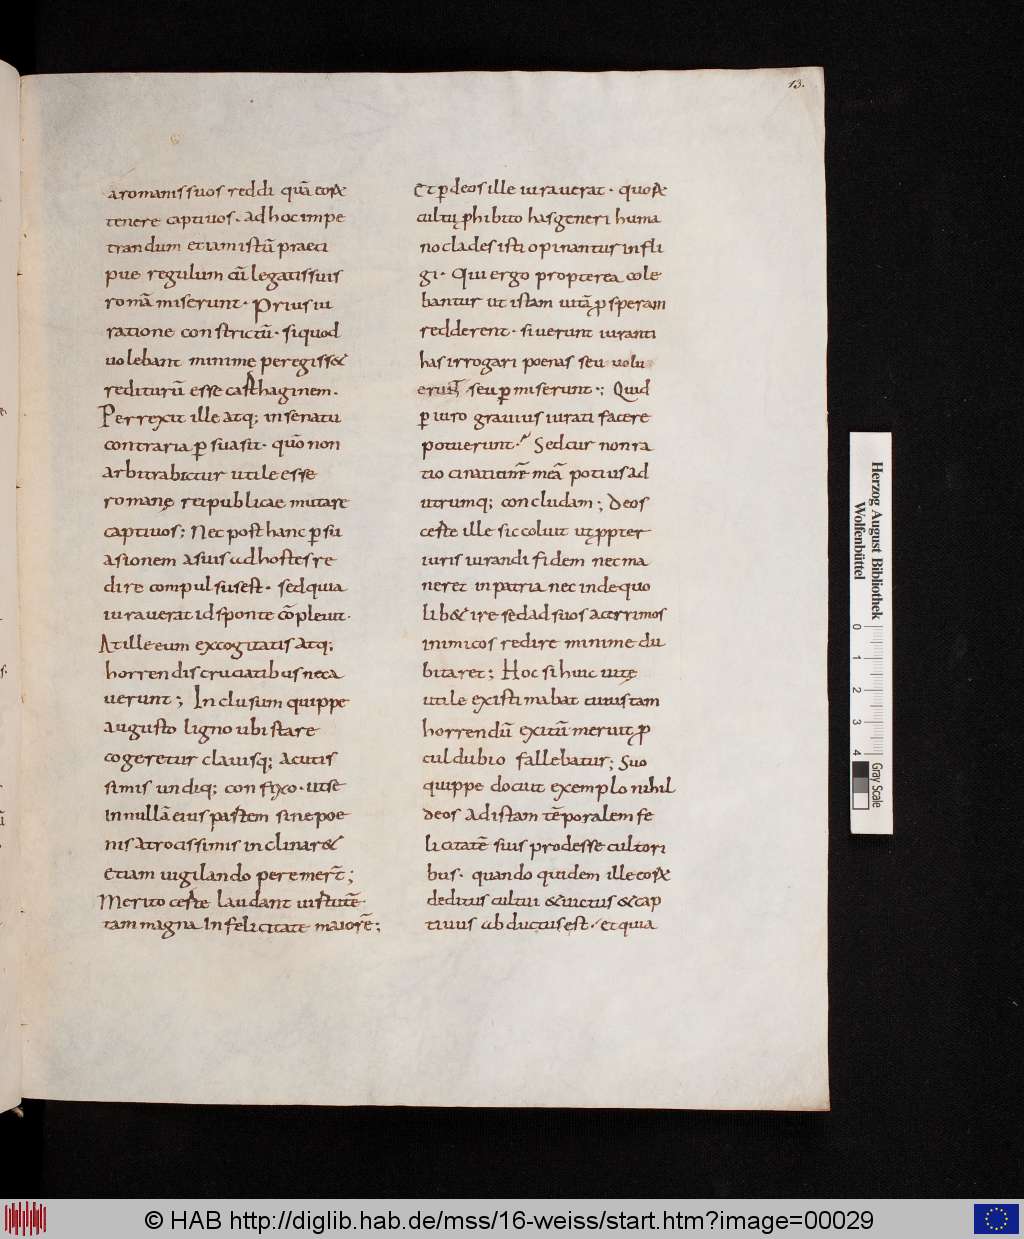 13.
aromanis suos reddi quā eorū
tenere captiuos. ad hoc impe
trandum etiam istū praeci
pue regulum cū legatis suis
romā miserunt. Prius iu
ratione constrictū. si quod
uolebant minime peregiss&
rediturū esse carthaginem.
Perrexit ille atq; in senatu
contraria ꝑsuasit. quō non
arbitrabatur utile esse
romanę reipublicae mutare
captiuos; Nec post hanc ꝑsu
asionem a suis ad hostes re
dire compulsus est. sed quia
iurauerat id sponte cōpleuit.
At ille eum excogitatis atq;
horrendis cruciatibus neca
uerunt; Inclusum quippe
angusto ligno ubi stare
cogeretur clauisq; acutis
simis undiq; confixo. ut se
in nullā eius partem sine poe
nis atrocissimis inclinar&
etiam uigilando peremer̄t;
Merito certe laudant uirtutē
tam magna Infelicitate maiorē;
Et ꝑ deos ille iurauerat. quorū
cultu ꝓhibito has generi huma
no clades isti opinantur infli
gi. Qui ergo propterea cole
bantur ut istam uitā ꝓsperam
redderent. si uerunt iuranti
has irrogari poenas seu uolu
erun̄t seu ꝑmiserunt; Quid
ꝑiuro grauius irati facere
potuerunt. Sed cur non ra
tio
meā potius ad
utrumq; concludam; Deos
certe ille sic coluit ut ꝓpter
iuris iurandi fidem nec ma
neret in patria nec inde quo
lib& ire sed ad suos acerrimos
inimicos redire minime du
bitaret; Hoc si huic uitę
utile existimabat cuius tam
horrendū exitū meruit ꝓ
cul dubio fallebatur; Suo
quippe docuit exemplo nihil
deos ad istam tēporalem fe
licitatē suis prodesse cultori
bus. quando quidem ille eorū
deditus cultui & uictus & cap
tiuus abductus est. et quia
Herzog August Bibliothek
Wolfenbüttel
0 1 2 3 4
Gray Scale
© HAB http://diglib.hab.de/mss/16-weiss/start.htm?image=00029